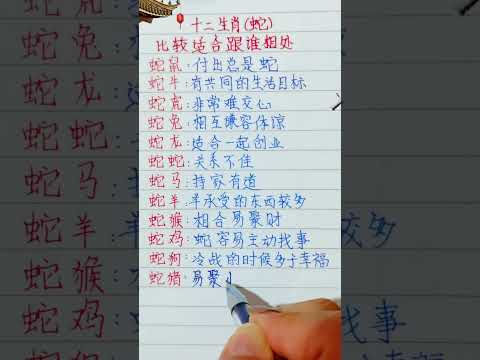 十二生肖(蛇)
比较适合跟谁相处
蛇鼠:付出总是蛇
蛇牛:有共同的生活目标
蛇虎:非常难交心
蛇兔:相互搛容体谅
蛇龙:适合一起创业
蛇蛇:关系不佳
蛇马:持家有道
蛇羊:羊承受的东西较多
蛇猴:相合易聚财
蛇鸡:蛇容易主动找事
蛇狗:冷战的时候多于幸福
蛇猪:易聚